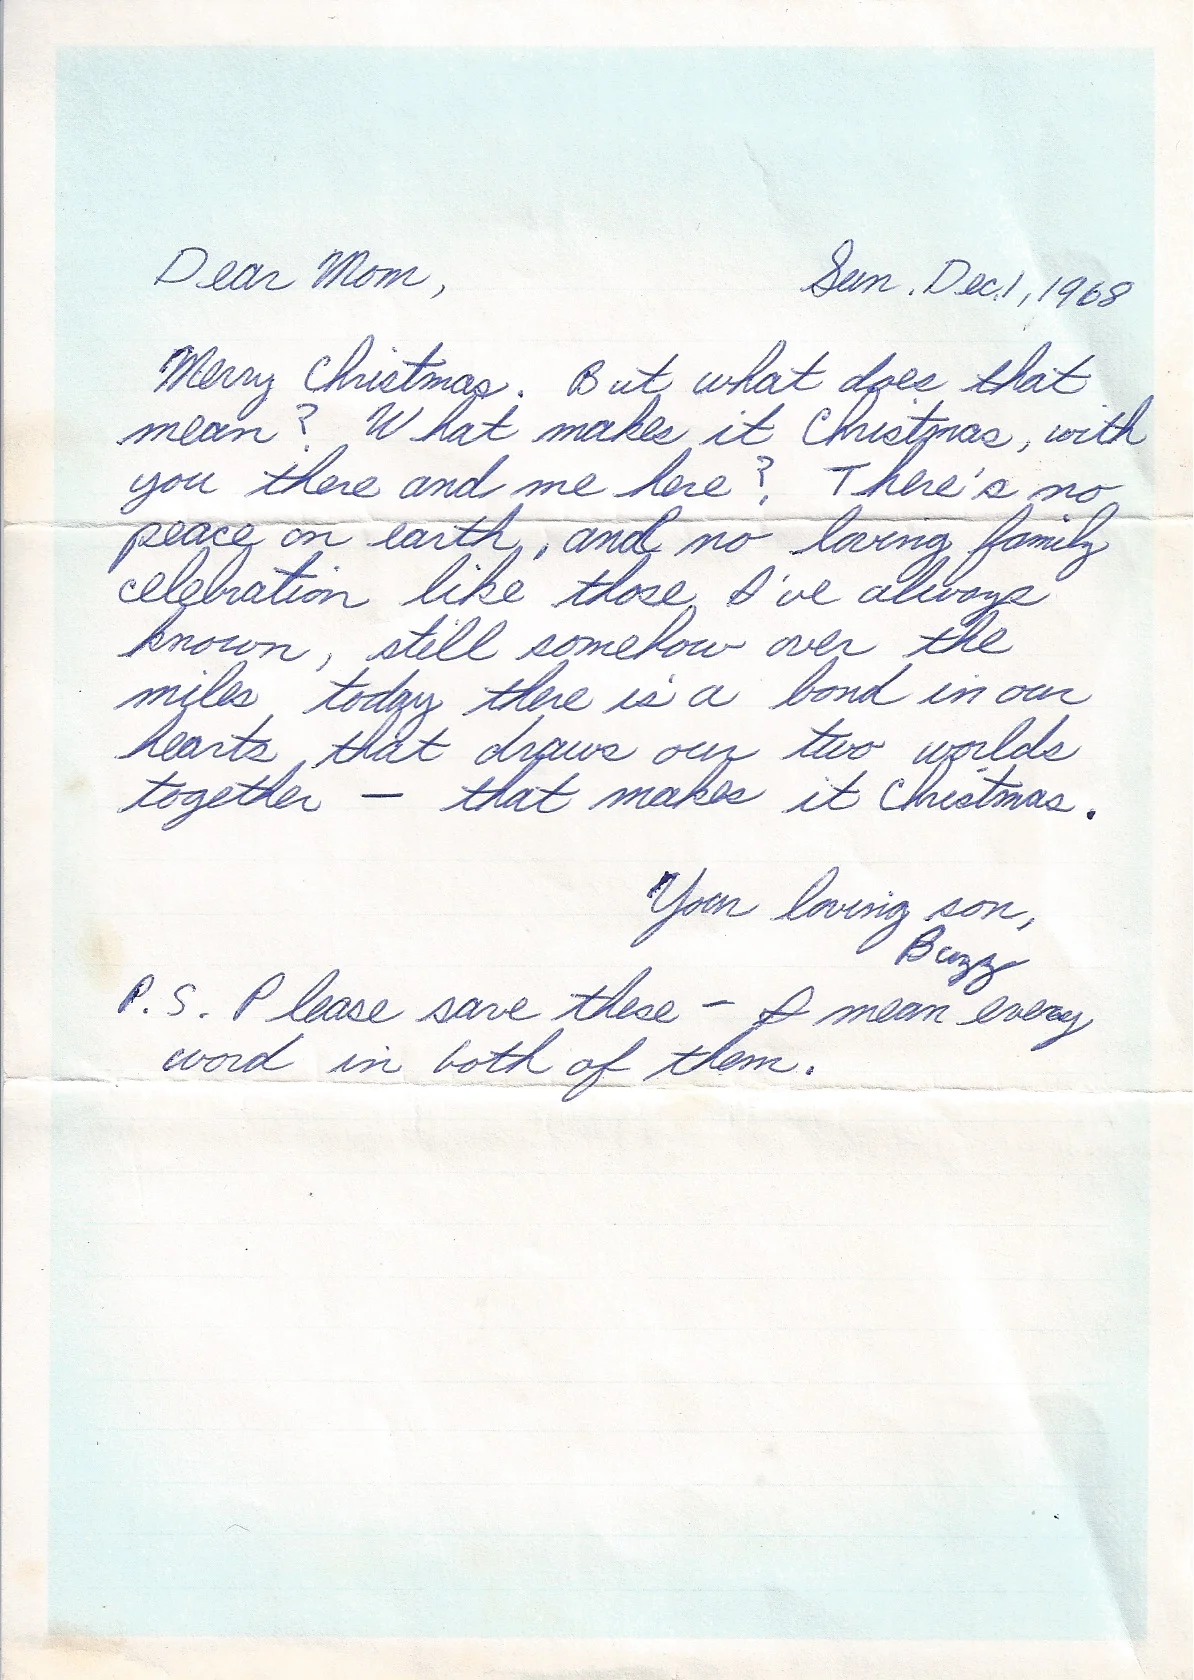 Dear Mom, Sun. Dec. 1, 1968
Merry Christmas. But what does that
mean? What makes it Christmas, with
you there and me here? There's no
peace on earth, and no loving family
celebration like those I've always
known, still somehow over the
miles today there is a bond in our
hearts that draws our two worlds
together — that makes it Christmas.
Your loving son,
Buzz
P.S. Please save these - I mean every
word in both of them.